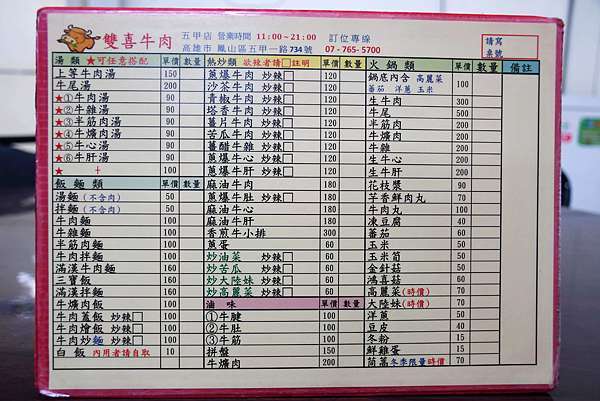 雙喜牛肉
五甲店 營業時間 11:00~21:00 訂位專線
高雄市 鳳山區五甲一路734號 07-765-5700
請寫
桌號
湯類 ★可任意搭配 單價 數量
上等牛肉湯 150
牛尾湯 200
★①牛肉湯 90
★②牛雜湯 90
★③半筋肉湯 90
★④牛爌肉湯 90
★⑤牛心湯 90
★⑥牛肝湯 90
★ + 100
飯麵類 單價 數量
湯麵(不含肉) 50
拌麵(不含肉) 50
牛肉麵 100
牛雜麵 100
半筋肉麵 100
牛肉拌麵 100
滿漢牛肉麵 160
三寶飯 160
滿漢拌麵 160
牛爌肉飯 100
牛肉蓋飯 炒辣□ 100
牛肉燴飯 炒辣□ 100
牛肉炒麵 炒辣□ 100
白飯 內用者請自取 10
熱炒類 欲辣者請□註明 單價 數量
蔥爆牛肉 炒辣□ 120
沙茶牛肉 炒辣□ 120
青椒牛肉 炒辣□ 120
塔香牛肉 炒辣□ 120
薑片牛肉 炒辣□ 120
苦瓜牛肉 炒辣□ 120
薑醋牛雜 炒辣□ 120
蔥爆牛心 炒辣□ 120
蔥爆牛肝 炒辣□ 120
麻油牛肉 180
蔥爆牛肚 炒辣□ 180
麻油牛心 180
麻油牛肝 180
香煎牛小排 300
蔥蛋 60
炒油菜 炒辣□ 60
炒苦瓜 炒辣□ 60
炒大陸妹 炒辣□ 60
炒高麗菜 炒辣□ 60
滷味 單價 數量
①牛腱 100
②牛肚 100
③牛筋 100
拼盤 200
牛爌肉 200
火鍋類 單價 數量
鍋底內含 高麗菜
番茄 洋蔥 玉米 100
生牛肉 300
牛尾 500
半筋肉 200
牛爌肉 200
牛雜 200
生牛心 200
生牛肝 200
花枝漿 90
芋香鮮肉丸 70
牛肉丸 100
凍豆腐 40
番茄 60
玉米 50
玉米筍 60
金針菇 50
鴻喜菇 60
高麗菜(時價) 70
大陸妹(時價) 70
洋蔥 50
豆皮 40
冬粉 15
鮮雞蛋 15
茼萵冬季限量時價 70
備註